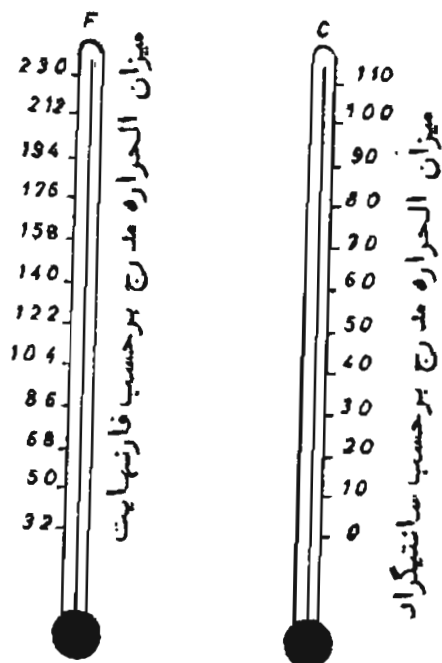 F
230
212
194
176
158
140
122
104
86
68
50
32
ميزان الحراره مدرج برحسب فارنهايت
C
110
100
90
80
70
60
50
40
30
20
10
0
ميزان الحراره مدرج برحسب سانتيگراد